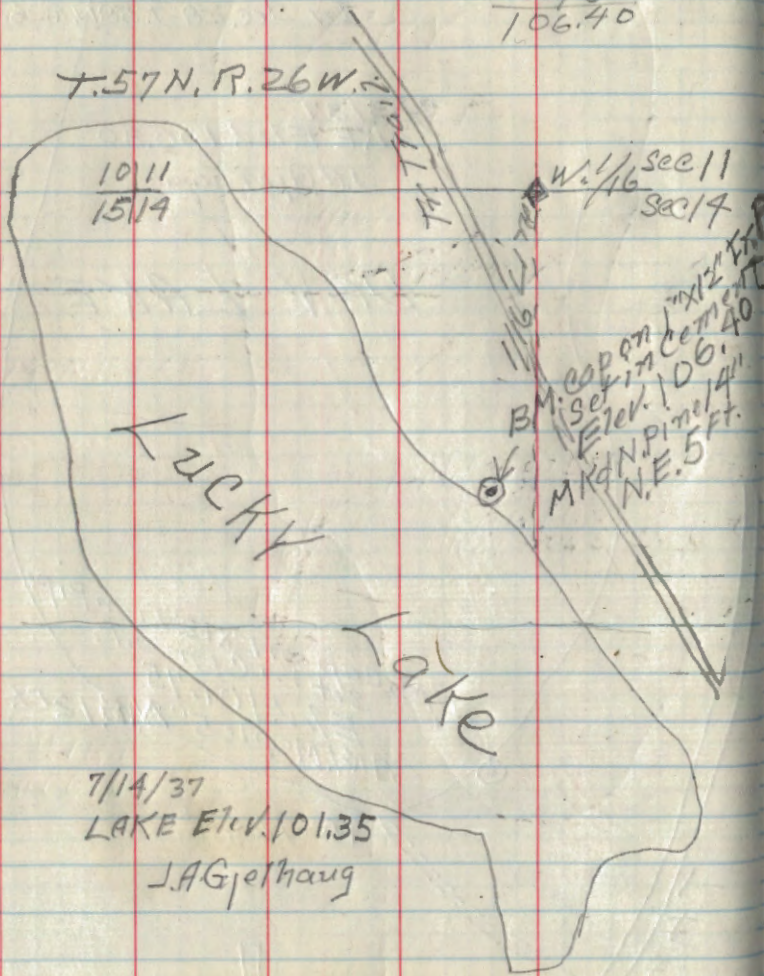 106.40
T.57N. R.26W.
Ft Trail
10|11
15|14
W. 1/16 sec 11
sec 14
1/16 Line
B.M. cap on 1"x12"
Set in Cement
Elev. 106.40
MKd N.Pine 14"
N.E. 5 Ft.
Lucky
Lake
7/14/37
LAKE Elev. 101.35
J.A Gjelhaug